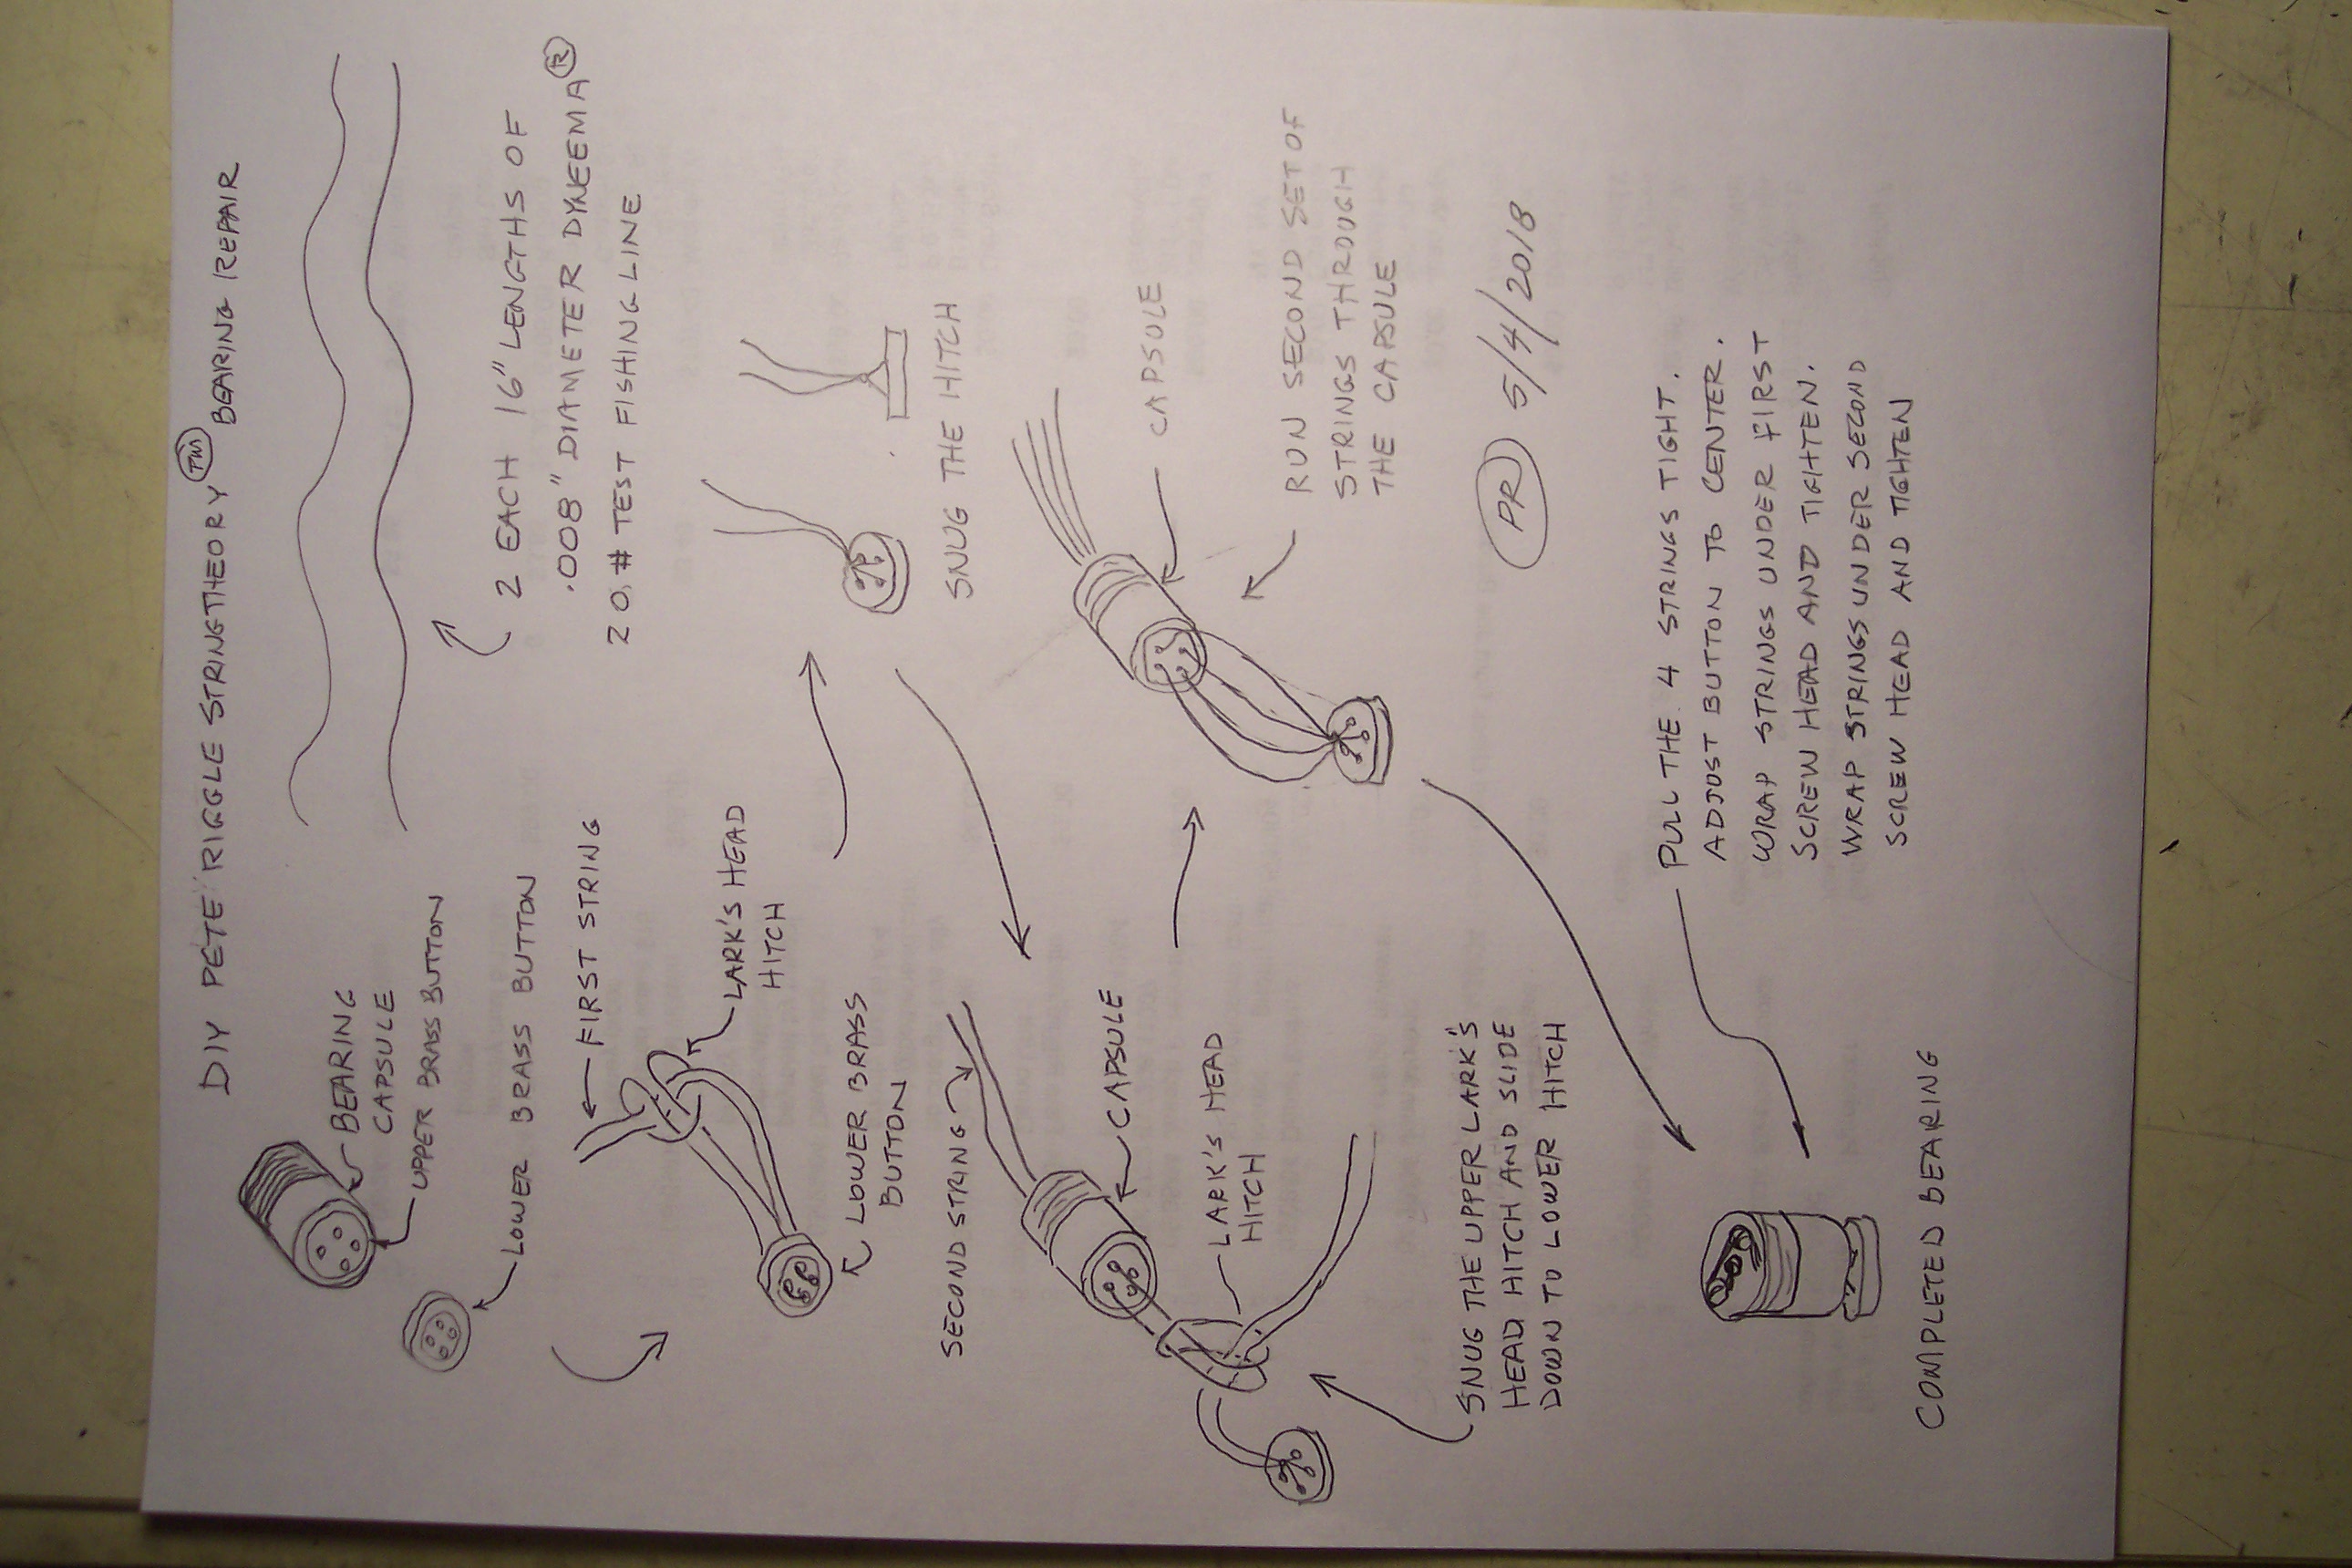 DIY PETE RIGGLE STRINGTHEORY TM BEARING REPAIR
BEARING
CAPSULE
UPPER BRASS BUTTON
LOWER BRASS BUTTON
2 EACH 16" LENGTHS OF
.008" DIAMETER DYNEEMA®
20# TEST FISHING LINE
FIRST STRING
LARK'S HEAD
HITCH
LOWER BRASS
BUTTON
SNUG THE HITCH
SECOND STRING
CAPSULE
LARK'S HEAD
HITCH
SNUG THE UPPER LARK'S
HEAD HITCH AND SLIDE
DOWN TO LOWER HITCH
CAPSULE
RUN SECOND SET OF
STRINGS THROUGH
THE CAPSULE
PR 5/4/2018
PULL THE 4 STRINGS TIGHT.
ADJUST BUTTON TO CENTER.
WRAP STRINGS UNDER FIRST
SCREW HEAD AND TIGHTEN.
WRAP STRINGS UNDER SECOND
SCREW HEAD AND TIGHTEN
COMPLETED BEARING